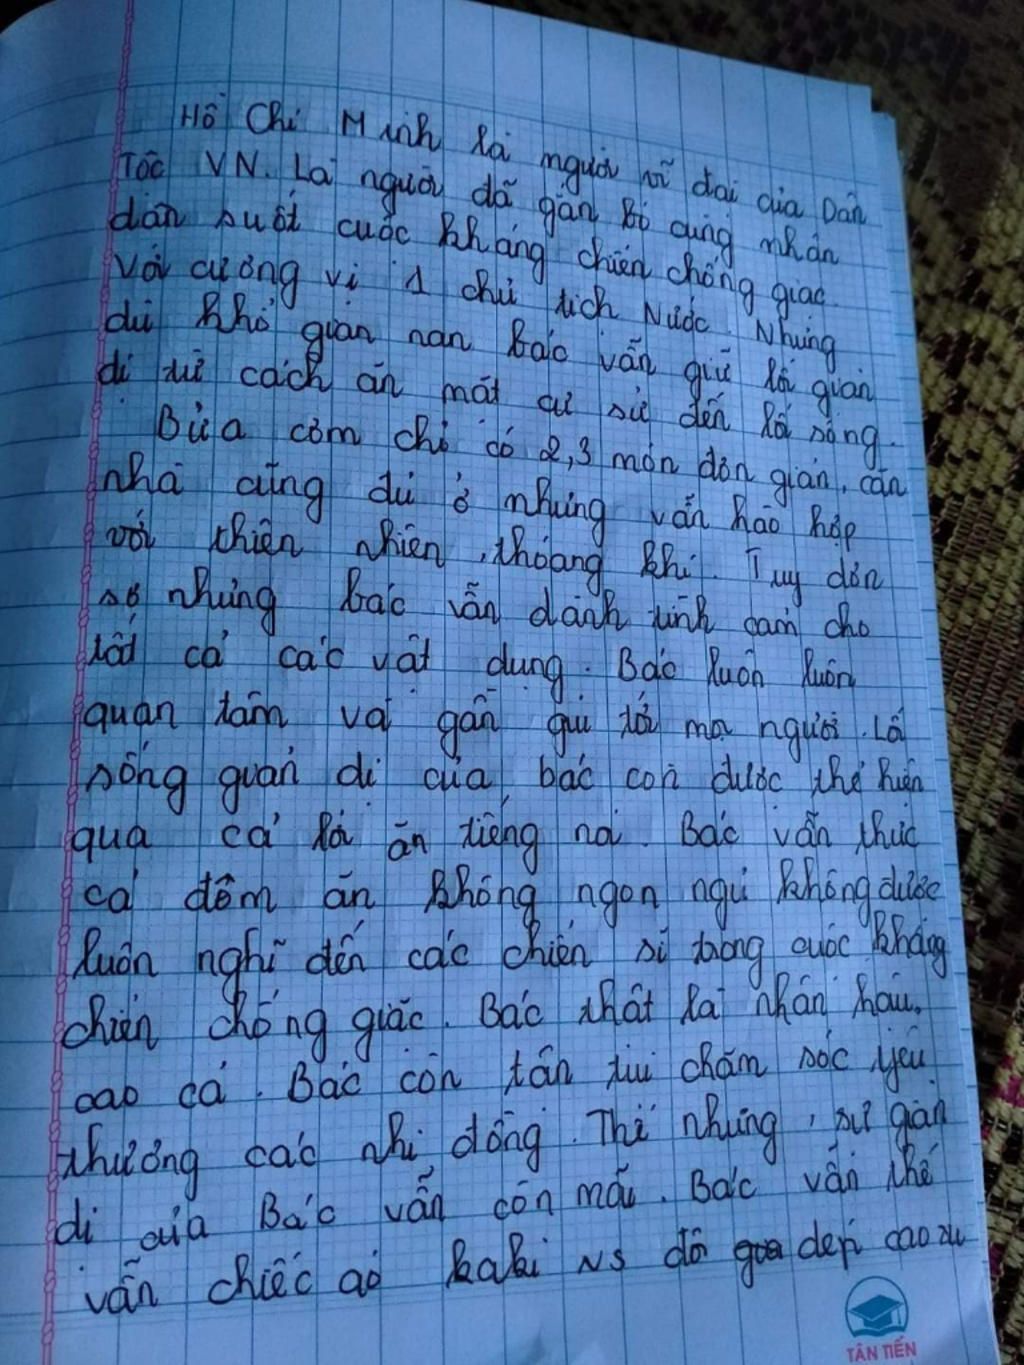 Hồ Chí Minh là người vĩ đại của Dân
Tộc VN. Là người đã gắn bó cùng nhân
dân suốt cuộc kháng chiến chống giặc
Với cương vị 1 chủ tịch Nước. Nhưng
dù khó gian nan bác vẫn giữ lối giản
dị từ cách ăn mặt cư sử đến lối sống.
Bửa cơm chỉ có 2,3 món đơn giản, căn
nhà cũng đủ ở nhưng vẫn hào hợp
với thiên nhiên, thóang khí. Tuy đơn
sơ nhưng bác vẫn dành tình cảm cho
tất cả các vật dụng. Bác luôn luôn
quan tâm và gần gũi tới mọi người. Lối
sống giản dị của bác còn được thể hiện
qua cả lời ăn tiếng nói. Bác vẫn thức
cả đêm ăn không ngon ngủ không được
luôn nghĩ đến các chiến sĩ trong cuộc kháng
chiến chống giặc. Bác thật là nhân hậu,
cao cả. Bác còn tần tụi chăm sóc yêu
thương các nhi đồng. Thế nhưng, sự giản
dị của Bác vẫn còn mãi. Bác vẫn thế
vẫn chiếc áo kaki vs đôi dép cao su
TÂN TIẾN